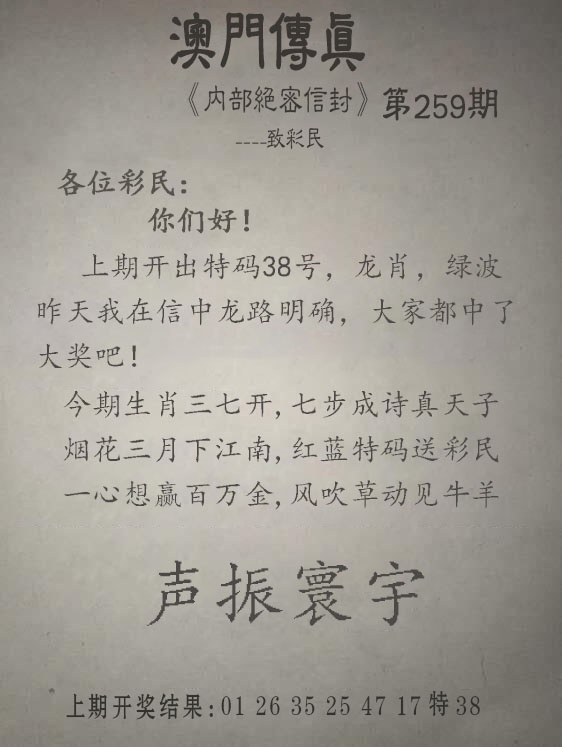 澳門傳真
《内部絕密信封》第259期
----致彩民
各位彩民：
你们好！
上期开出特码38号，龙肖，绿波
昨天我在信中龙路明确，大家都中了
大奖吧！
今期生肖三七开,七步成诗真天子
烟花三月下江南,红蓝特码送彩民
一心想赢百万金,风吹草动见牛羊
声振寰宇
上期开奖结果:01 26 35 25 47 17特38